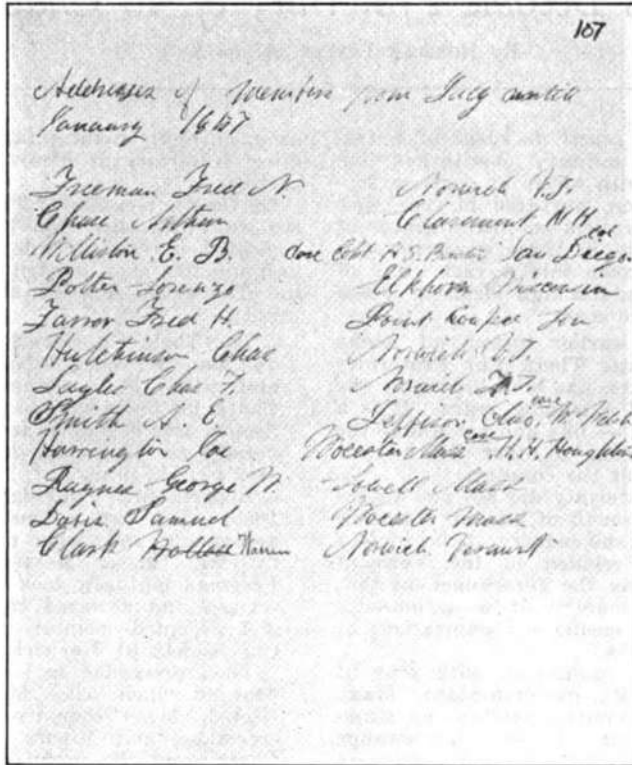 107
Addresses of Members from
January 1857
Freeman Fred N. Norwich V.T.
Chase Arthur Claremont N H
Williston E. B. care Capt. H. S. Burton San Diego Cal
Potter Lorenzo Elkhorn Wisconsin
Farror Fred H. Point Coupee
Hutchinson Chas Norwich V.T.
Chas F. Norwich V.T.
Smith A. E. Jefferson, Ohio, care
Harrington Worcester Mass care H. H. Houghton
Raynes George W Lowell Mass
Davis Samuel Worcester Mass
Clark Norwich Vermont